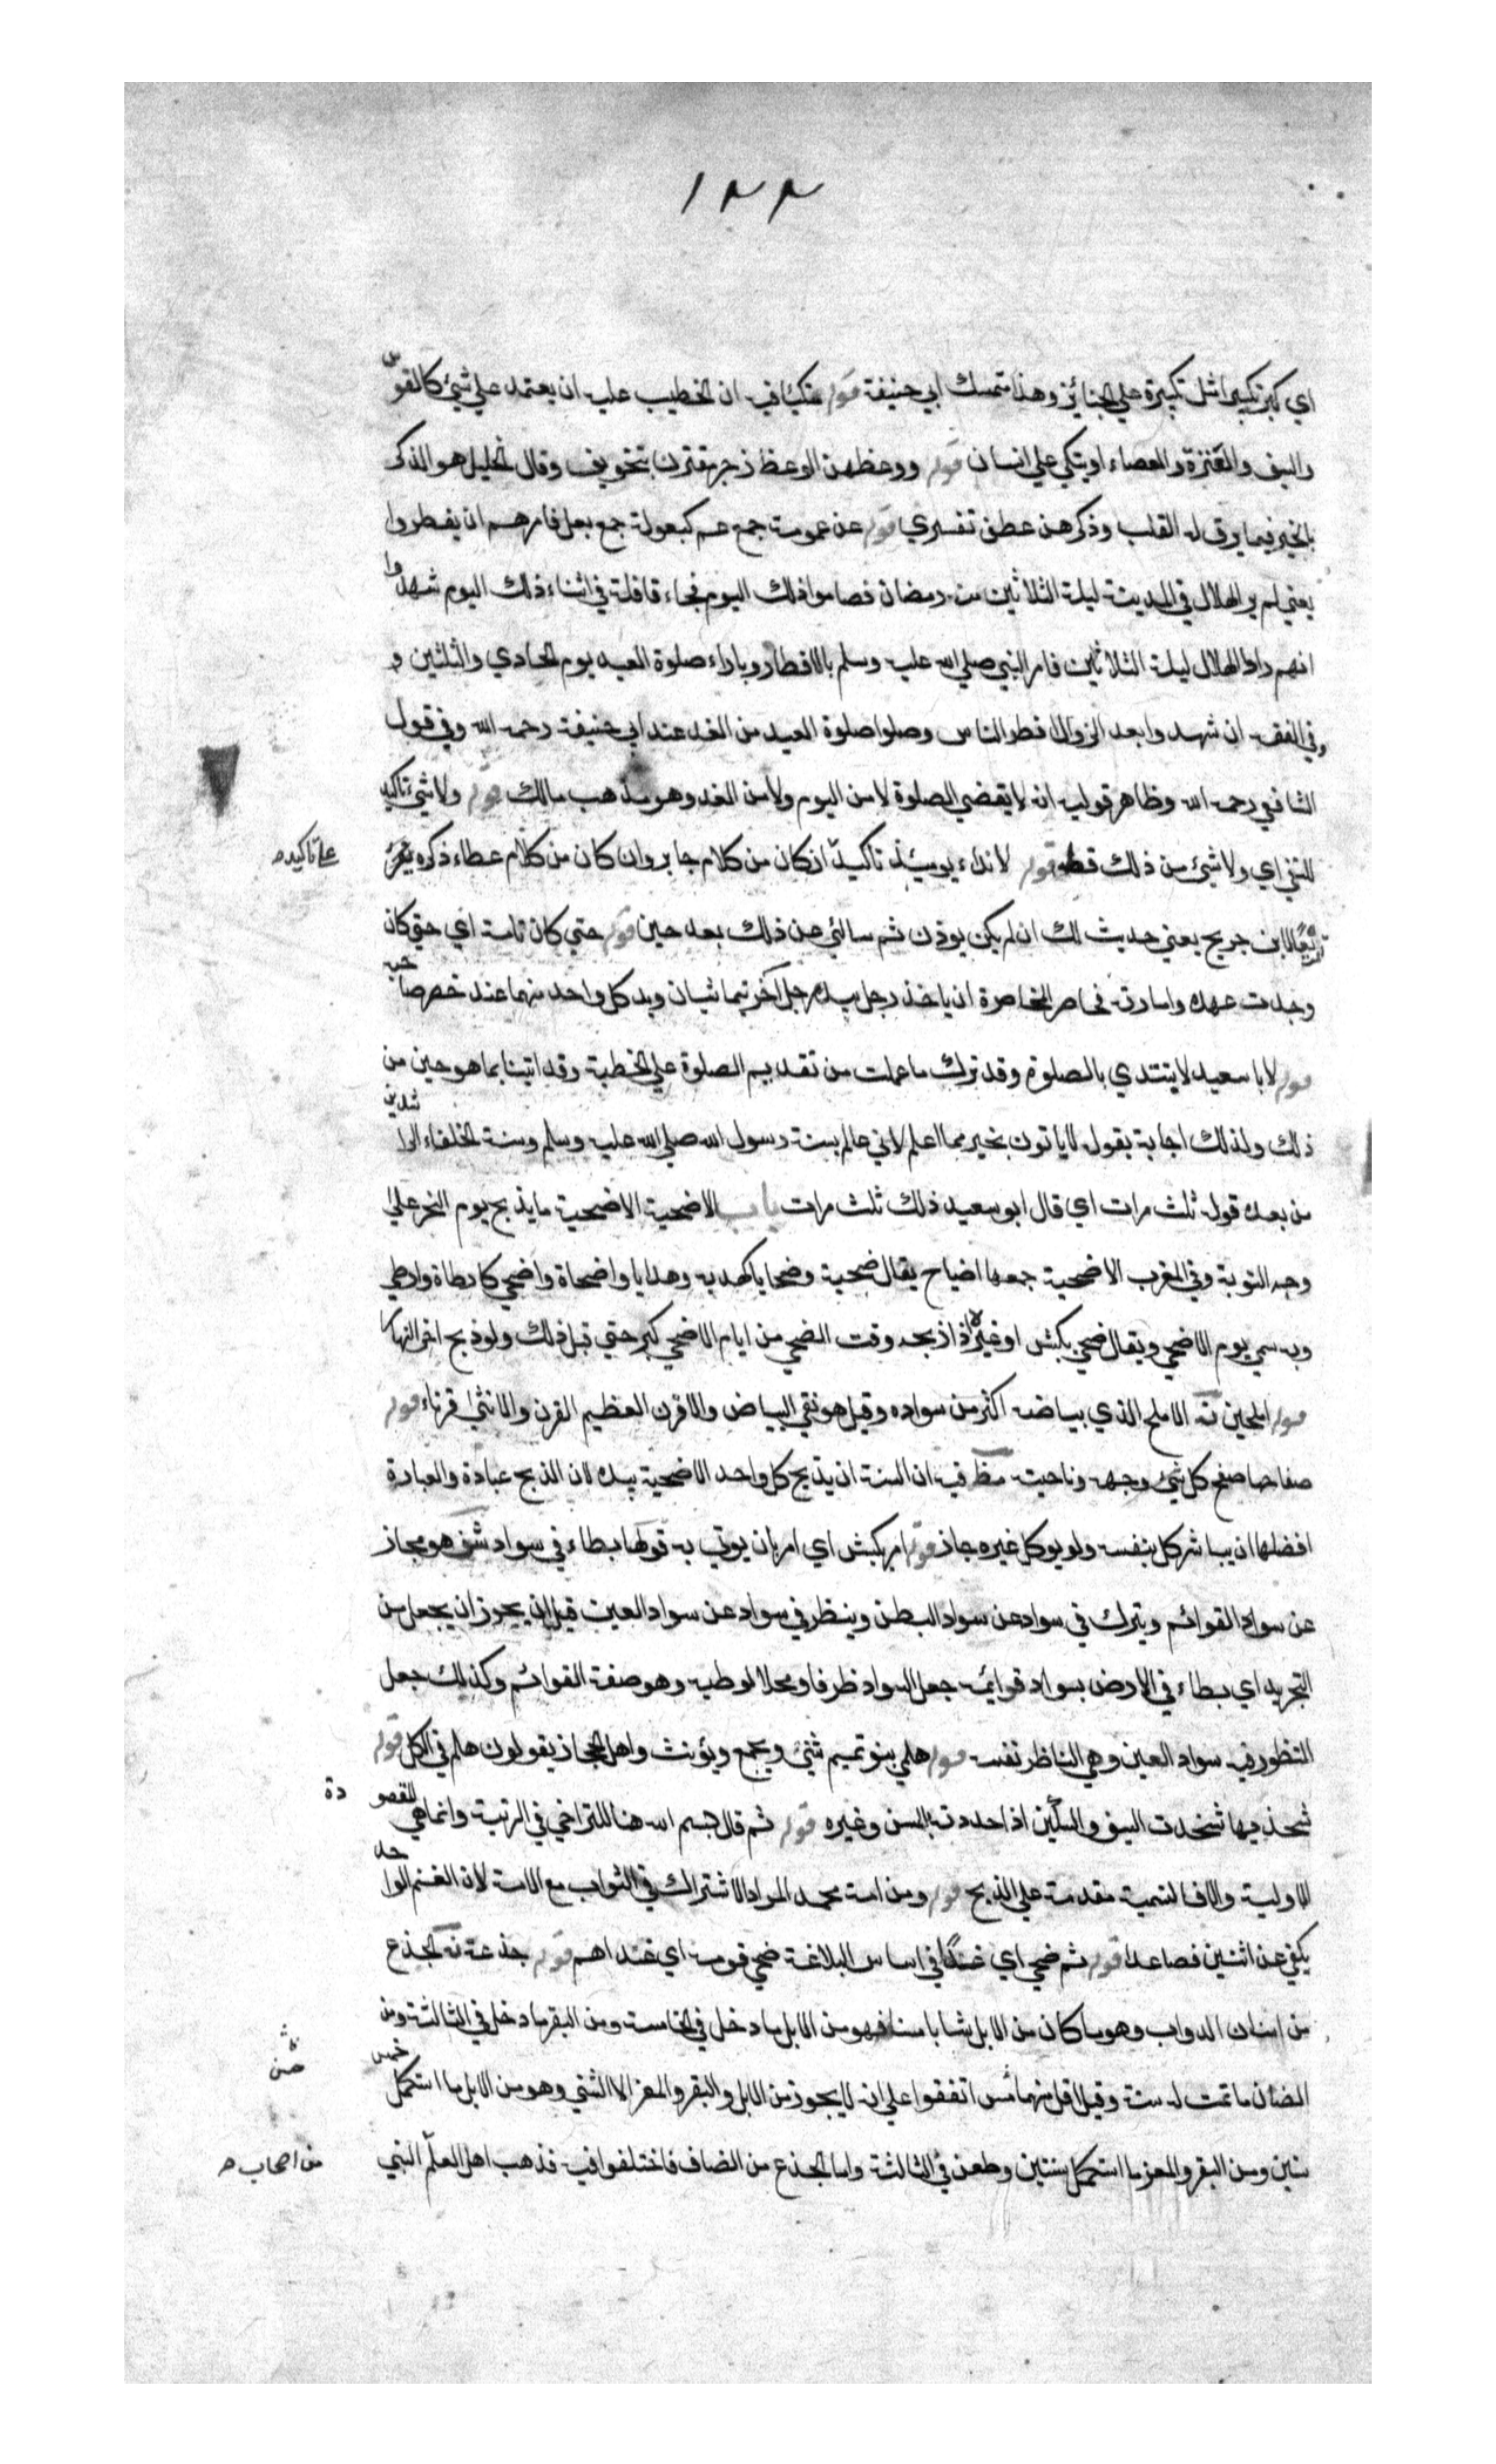 ١٢٢
اي كبر تكبيرا مثل تكبيرة علي الجنائز وهذا متمسك ابي حنيفة قوله متكئا فيه ان الخطيب عليه ان يعتمد علي شيء كالقوس
والسيف والعنزة والعصاء او يتكي علي انسان قوله ووعظهن الوعظ زجر مقترن بتخويف وقال الخليل هو الذكر
بالخير فيما يرق له القلب وذكرهن عطف تفسيري قوله عن عمومة جمع عم كبعولة جمع بعل فامرهم ان يفطروا
يعني لم ير الهلال في المدينة ليلة الثلاثين من رمضان فصاموا ذلك اليوم فجاء قافلة في اثناء ذلك اليوم شهدوا
انهم راوا الهلال ليلة الثلاثين فامر النبي صلي الله عليه وسلم بالافطار وباداء صلوة العيد يوم الحادي والثلثين و
وفي الفقه ان شهدوا بعد الزوال افطر الناس وصلوا صلوة العيد من الغد عند ابي حنيفة رحمه الله وفي قول
الشافعي رحمه الله وظاهر قوليه انه لا يقضي الصلوة لا من اليوم ولا من الغد وهو مذهب مالك قوله ولا شيء تاكيد
للنفي اي ولا شيء من ذلك قط قوله لا نداء يومئذ تاكيد ان كان من كلام جابر وان كان من كلام عطاء ذكره
علي تاكيده
لابن جريج يعني حديث لك ان لم يكن يوذن ثم سالني عن ذلك بعد حين قوله حتي كان اي حتي كان
وجدت عهده وامارته مخاصر المخاصرة ان ياخذ رجل بيد رجل آخر يتماشيان ويد كل واحد منهما عند خصر صاحبه
قوله لابا سعيد لا يبتدي بالصلوة وقد ترك ما علمت من تقديم الصلوة علي الخطبة وقد اتينا بما هو من
ذلك ولذلك اجابه بقوله لا ياتون بخير مما اعلم لاني عالم بسنة رسول الله صلي الله عليه وسلم وسنة الخلفاء الراشدين
من بعده قوله ثلث مرات اي قال ابو سعيد ذلك ثلث مرات باب الاضحية الاضحية ما يذبح يوم النحر علي
وجه القربة وفي المغرب الاضحية جمعها اضاحي يقال ضحية وضحايا كهدية وهدايا واضحاة واضحي كارطاة وارطي
وبه سمي يوم الاضحي ويقال ضحي بكبش او غيره اذا ذبحه وقت الضحي من ايام الاضحي كثر حتي قيل ذلك ولو ذبح اخر النهار
قوله املحين نه الاملح الذي بياضه اكثر من سواده وقيل هو نقي البياض والاقرن العظيم القرن والانثي قرناء قوله
صفاحها صفح كل شيء وجهه وناحيته مظ فيه ان السنة ان يذبح كل واحد الاضحية بيده لان الذبح عبادة والعبادة
افضلها ان يباشر كل بنفسه ولو يوكل غيره جاز قوله امر بكبش اي امر بان يوتي به قولها يطاء في سواد شف هو مجاز
عن سواد القوائم ويبرك في سواد عن سواد البطن وينظر في سواد عن سواد العين قيل ان يجوز ان يجعل من
التجريد اي يطاء في الارض بسواد قوائمه جعل السواد ظرفا ومحلا لوطيه وهو صفة القوائم وكذلك جعل
النظور فيه سواد العين وهي الناظر نفسه قوله هلمي بنو تميم تثني ويجمع ويؤنث واهل الحجاز يقولون هلم في الكل قوله
شحذيها شحذت السيف والسكين اذا حددته بالمسن وغيره قوله ثم قال بسم الله هنا للتراخي في الرتبة وانما هي المقصودة
الاولية والا فالتسمية مقدمة علي الذبح قوله ومن امة محمد المراد الاشتراك في الثواب مع الامة لان الغنم الواحد
يكفي عن اثنين فصاعدا قوله ثم ضحي اي غدا في اساس البلاغة ضحي قومه اي غداهم قوله جذعة نه الجذع
من اسنان الدواب وهو ما كان من الابل شابا فهو من الابل ما دخل في الخامسة ومن البقر ما دخل في الثالثة ومن
الضان ما تمت له سنة وقيل اقل منها شس اتفقوا علي انه لا يجوز من الابل والبقر والمعز الا الثني وهو من الابل ما استكمل خمس
سنين ومن البقر والمعز ما استكمل سنتين وطعن في الثالثة واما الجذع من الضان فاختلفوا فيه فذهب اهل العلم النبي
من اصحاب